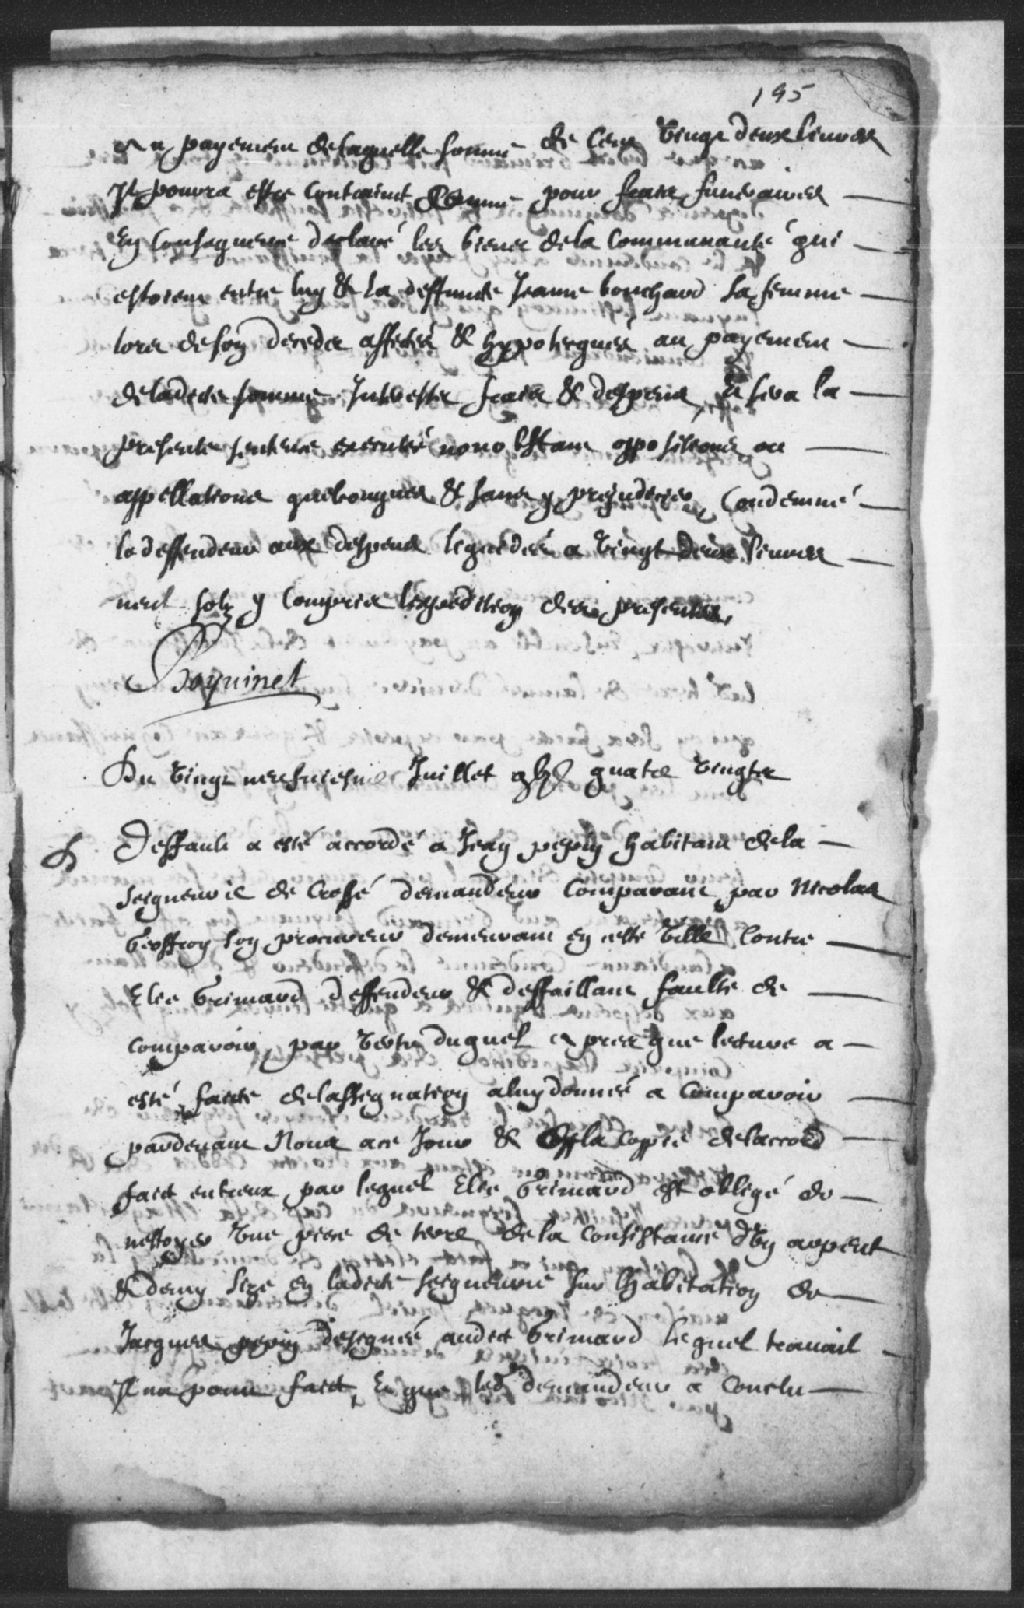 195
Au payement de laquelle somme de Cent Vingt deux livres
Il pourra estre Contraint Comme pour frais funeraires
En Consequence declaré les biens de la Communauté qui
estoient entre luy & la deffuncte Jeanne bouchard sa femme
lors de son decedz affectés & hypotecqués au payement
de ladicte somme Interestz frais & despens, Et sera la
presente sentence executée nonobstant oppositions ou
appellations quelconques & sans y prejudicier, Condemné
le deffendeur aux despens liquidés a Vingt deux livres
neuf solz y Compris lexpedition des presentes,
Boyvinet
Du Vingt neufviesme Juillet gbjC quatre Vingts
D
Deffault a esté accordé a Jean pepin habitant de la
seigneurie de Crossé demandeur Comparant par Nicolas
Geoffroy son procureur demeurant en ceste Ville Contre
Elie Grimard deffendeur & deffaillant faulte de
comparoir, par Vertu duquel apres que lecture a
esté faicte de lassignation a luy donnée a Comparoir
pardevant Nous a ce Jour & la Coppie de laccord
faict entreux par lequel Elie Grimard est obligé de
nettoyer Une piece de terre de la Consistance dUn arpent
& demy size en ladicte seigneurie sur lhabitation de
Jacques pepin designée audict Grimard lequel travail
Il na point faict, Et que led demandeur a Conclu